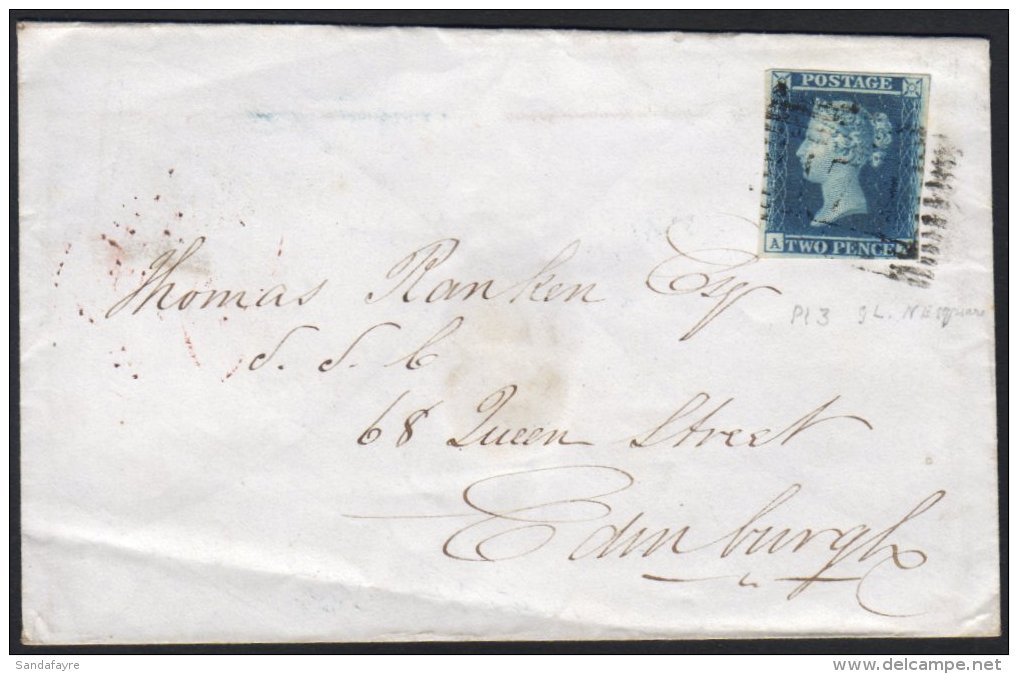 POSTAGE
A
TWO PENCE
Thomas Ranken Esq
S. S. C
68 Queen Street
Edinburgh
Pl 3
Sandafayre
www.delcampe.net